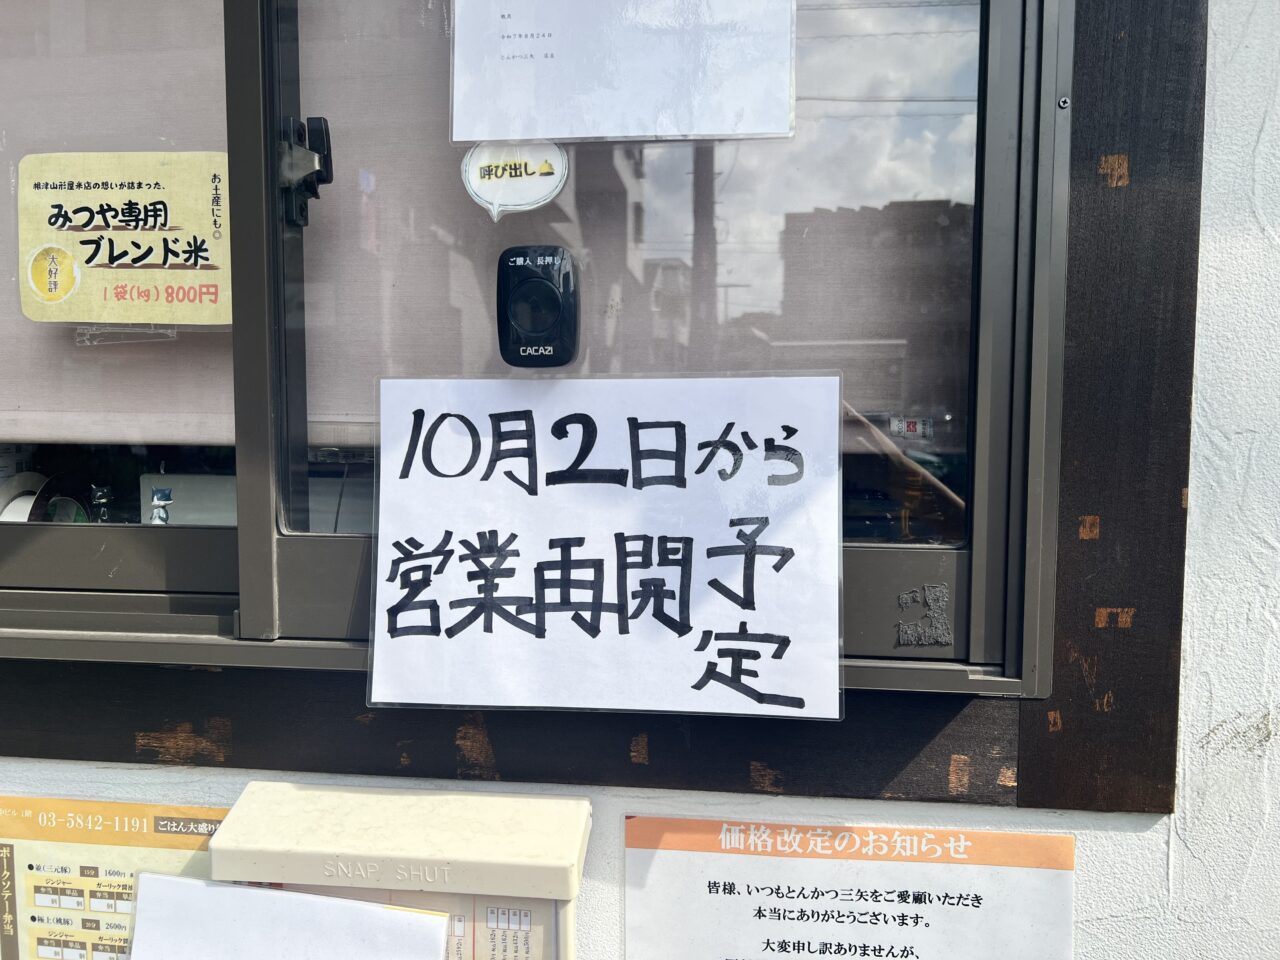 敬具
令和7年8月24日
とんかつ三矢 店主
呼び出し
ご購入 長押し
CACAZI
根津山形屋米店の想いが詰まった、
みつや専用
ブレンド米
お土産にも◎
大好評
1袋(kg)800円
10月2日から
営業再開予定
03-5842-1191
ごはん大盛り
ポークソテー弁当
●並(三元豚) 15分 1600円
ジンジャー ガーリック醤油
弁当 単品 弁当
個 個 個
●極上(桃豚) 20分 2600円
ジンジャー ガーリック
弁当 単品 弁当
個 個 個
SNAP SHUT
価格改定のお知らせ
皆様、いつもとんかつ三矢をご愛顧いただき
本当にありがとうございます。
大変申し訳ありませんが、